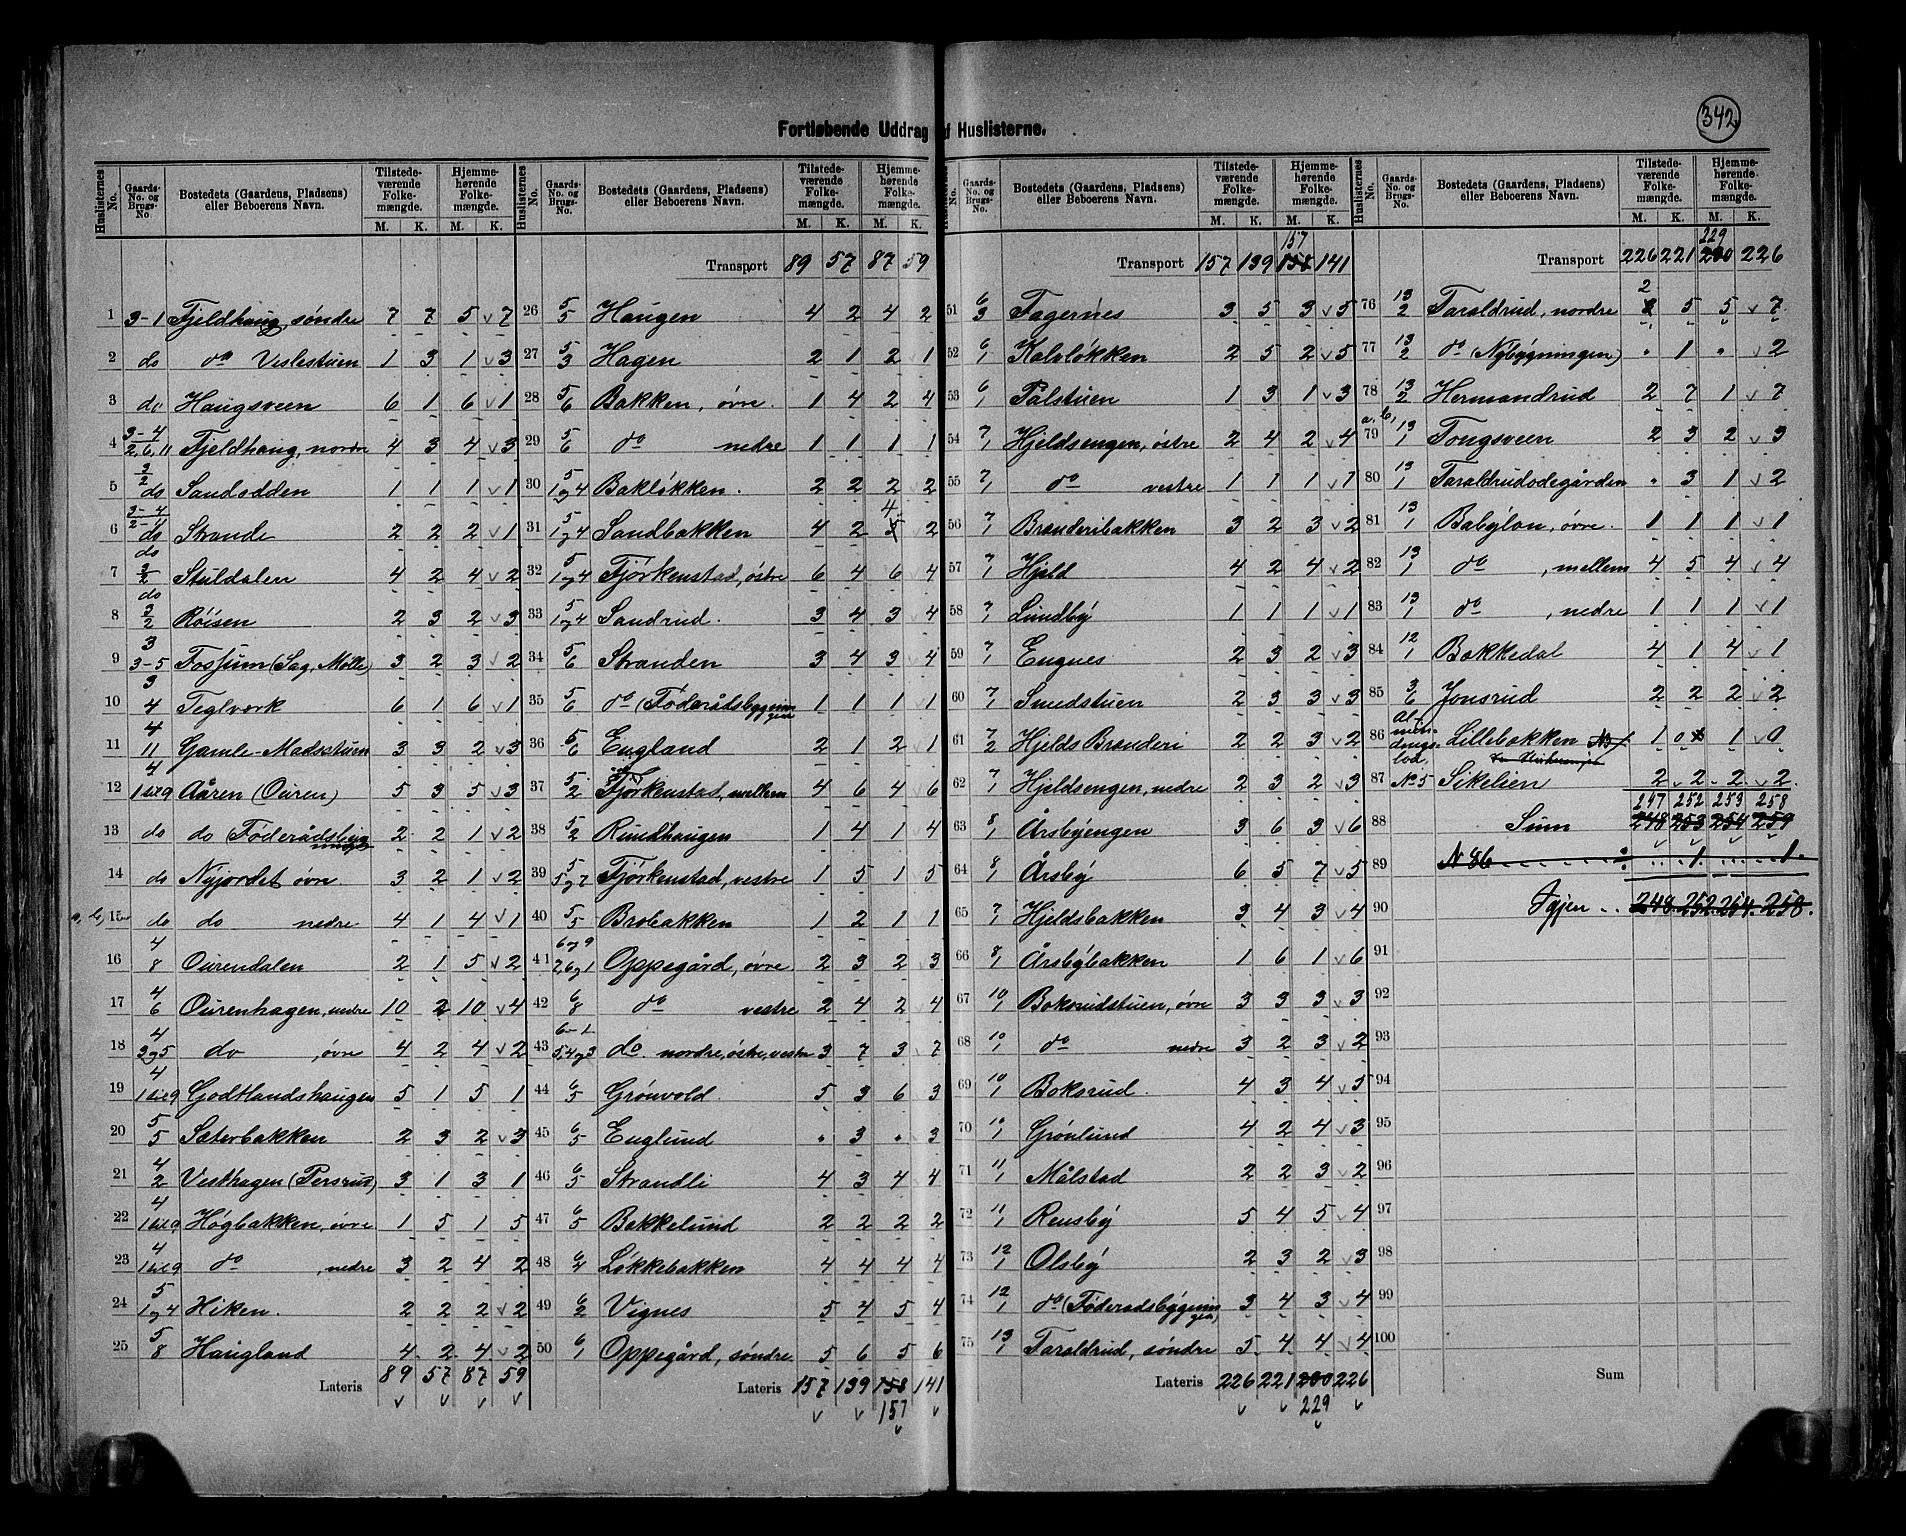 342
Fortløbende Uddrag af Huslisterne.
Huslisternes No. | Gaards-No. og Brugs-No. | Bostedets (Gaardens, Pladsens) eller Beboerens Navn. | Tilstedeværende Folkemængde. M. K. | Hjemmehørende Folkemængde. M. K.
1 3-1 Fjeldhaug, søndre 7 7 5 7
2 do do Veslestuen 1 3 1 3
3 do Haugsveen 6 1 6 1
4 3-4 2,6,11 Fjeldhaug, nordre 4 3 4 3
5 3/2 do Sandodden 1 1 1 1
6 3-4 2-4 do Strande 2 2 2 1
7 do 3/2 Stuldalen 4 2 4 2
8 do 3/2 Röisen 2 3 2 3
9 3 3-5 Fossum (Sag, Mölle) 3 2 3 2
10 3 4 Teglverk 6 1 6 1
11 4 11 Gamle-Madsstuen 3 3 2 3
12 4 1 til 9 Aären (Ouren) 5 3 5 3
13 do do Föderådsbygning 2 2 1 2
14 do Nyjordet övre 3 2 1 2
a, b, 15 do do nedre 4 1 4 1
16 4 8 Ourendalen 2 1 5 2
17 4 6 Ourenhagen, nedre 10 2 10 4
18 4 3og5 do , övre 4 2 4 2
19 4 1 til 9 Godtlandshaugen 5 1 5 1
20 5 5 Sæterbakken 2 3 2 3
21 4 2 Vesthagen (Persrud) 3 1 3 1
22 4 1 til 9 Högbakken, övre 1 5 1 5
23 4 1 til 9 do , nedre 3 2 4 2
24 5 1og4 Hiken. 2 2 2 2
25 5 8 Haugland 4 2 4 2
Lateris 89 57 87 59
Transport 89 57 87 59
26 5/5 Haugen 4 2 4 2
27 5/3 Hagen 2 1 2 1
28 5/6 Bakken, övre. 1 4 2 4
29 5/6 do nedre 1 1 1 1
30 5 1og4 Baklökken. 2 2 2 2
31 5 1og4 Sandbakken 4 2 5 4 2
32 5 1og4 Fjörkenstad, östre 6 4 6 4
33 5 1og4 Sandrud. 3 4 3 4
34 5/6 Stranden 3 4 3 4
35 5/6 do (Föderådsbygningen 1 1 1 1
36 5/6 England 2 1 2 1
37 5/2 Fjörkenstad, mellem 4 6 4 6
38 5/2 Rundhaugen 1 4 1 4
39 5 5og7 Fjörkenstad, vestre 1 5 1 5
40 5/5 Brobakken 1 2 1 1
41 6og9 2,6og1 Oppegård, övre. 2 3 2 3
42 6/8 do vestre 2 4 2 4
43 6-1 5,4og3 do. nordre, östre, vestre 3 7 3 7
44 6/5 Grönvold. 5 3 6 3
45 6/5 Englund " 3 " 3
46 6/5 Strandli 4 3 4 4
47 6/5 Bakkelund 2 2 2 2
48 6/4 Lökkebakken 4 4 4 4
49 6/2 Vignes 5 4 5 4
50 6/1 Oppegård, söndre. 5 6 5 6
Lateris 157 139 158 141
157
Transport 157 139 158 141
157
51 6/3 Fagernes 3 5 3 5
52 6/1 Kalvlökken 2 5 2 5
53 6/1 Pålstuen 1 3 1 3
54 7/1 Hjeldsengen, östre 2 4 2 4
55 7/1 do vestre 1 1 1 1
56 7/1 Brænderibakken 3 2 3 2
57 7/1 Hjeld 4 2 4 2
58 7/1 Lundby 1 1 1 1
59 7/1 Engnes 2 3 2 3
60 7/1 Smedstuen 2 3 3 3
61 7/2 Hjelds Brænderi 2 2 3 2
62 7/1 Hjeldsengen, nedre 2 3 2 3
63 8/1 Årsbyengen 3 6 3 6
64 8/1 Årsby 6 5 7 5
65 7/1 Hjeldsbakken 3 4 3 4
66 8/1 Årsbybakken 1 6 1 6
67 10/1 Boksrudstuen, övre 3 3 3 3
68 10/1 do nedre 3 2 3 2
69 10/1 Boksrud. 4 3 4 5
70 10/1 Grönlund 4 2 4 3
71 11/1 Målstad 2 2 3 2
72 11/1 Rensby 5 4 5 4
73 12/1 Olsby 2 3 2 3
74 12/1 do (Föderådsbygningen) 3 4 3 4
75 13/1 Taraldrud, söndre 5 4 4 4
Lateris 226 221 230 226
229
Transport 226 221 230 226
229
76 13/2 Taraldrud, nordre 2 5 5 7
77 13/2 do (Nybygningen) " 1 " 2
78 13/2 Hermandrud 2 7 1 7
a, b, 79 13/1 Tongsveen 2 3 2 3
80 13/1 Taraldrudodegården " 3 1 2
81 13/1 Babylon, övre. 1 1 1 1
82 13/1 do , mellem 4 5 4 4
83 13/1 do , nedre 1 1 1 1
84 12/1 Bakkedal 4 1 4 1
85 3/6 Jonsrud 2 2 2 2
86 Almindingslod. Lillebakken 1 0 1 0
87 No 5 Sikelien 2 2 2 2
247 252 253 258
88 Sum 248 253 254 259
89 N 86 1 1
90 Igjen .. 248. 252. 254. 258.
91
92
93
94
95
96
97
98
99
100
Sum